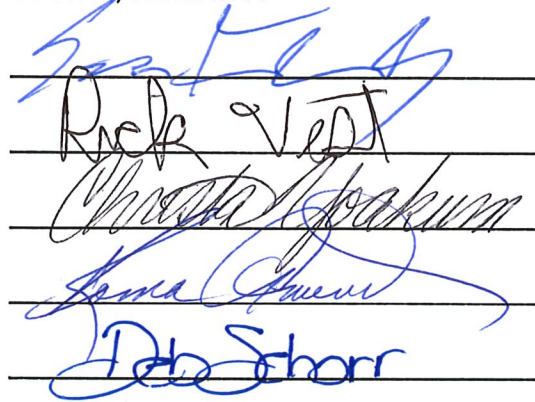 Rick Vest
Christa Yoakum
Roma Amundson
Deb Schorr